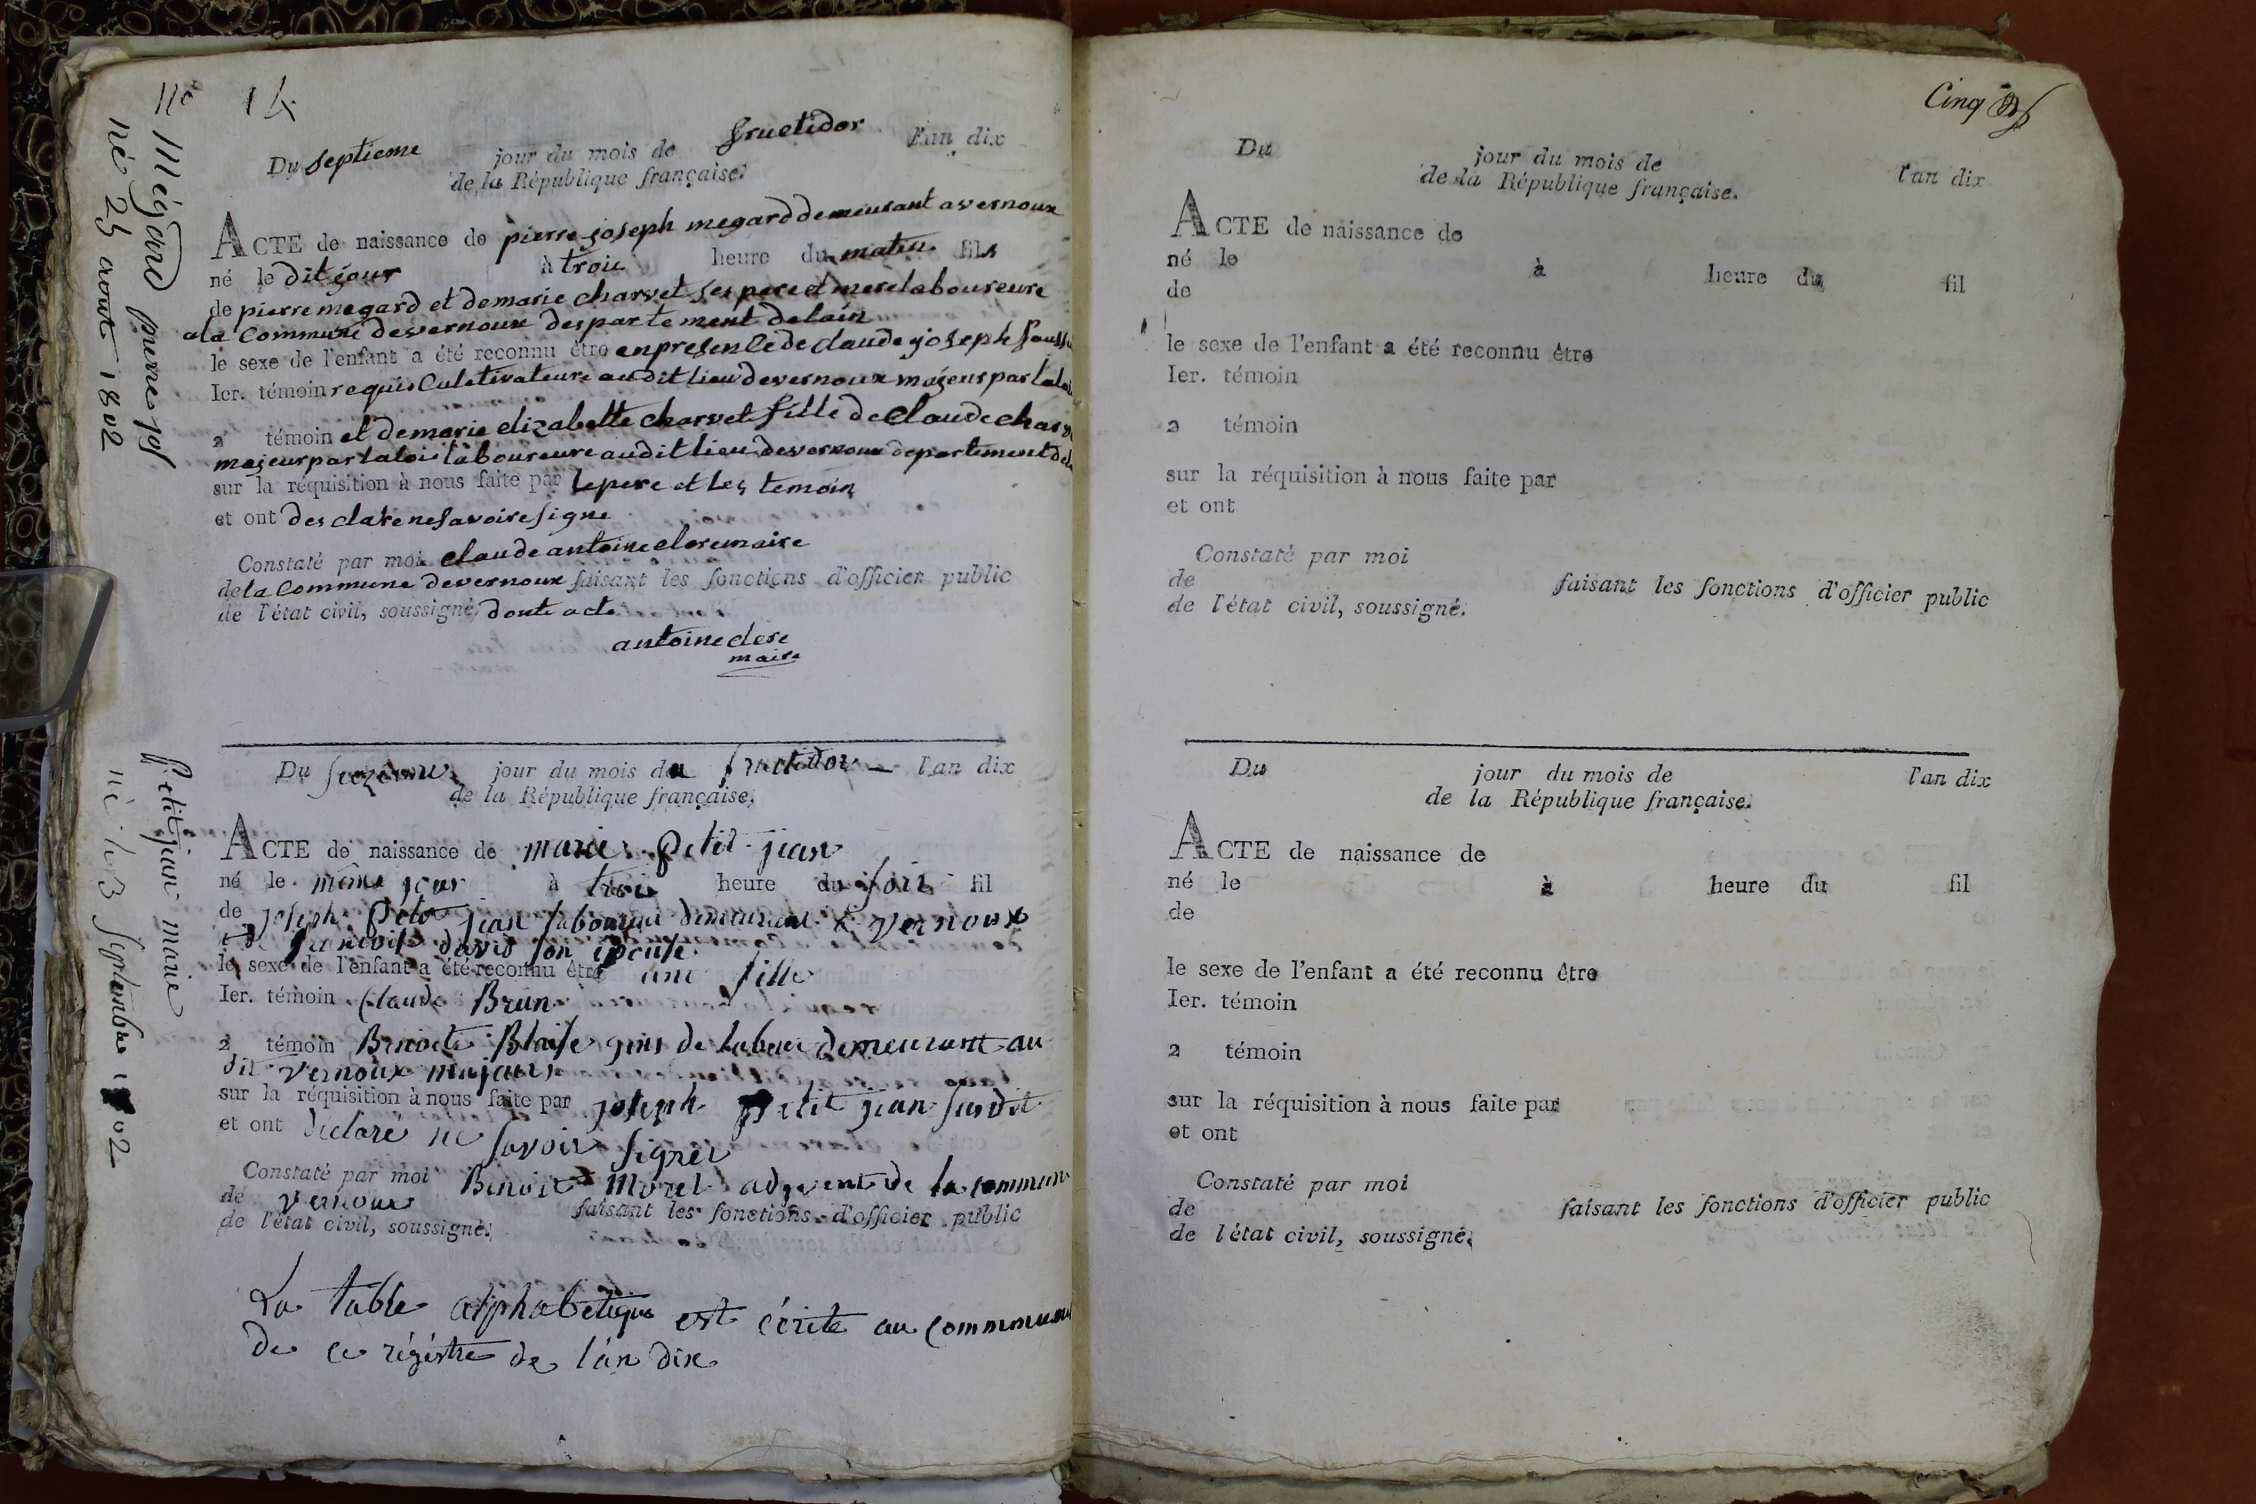 nº 14
Mégard pierre jos
né 25 aout 1802
Du septieme jour du mois de fructidor l'an dix
de la République française.
ACTE de naissance de pierre joseph megard demeurant a vernoux
né le dit jour à trois heure du matin fils
de pierre megard et de marie charvet ses pere et mere laboureure
a la Commune de vernoux despartement de lain
le sexe de l'enfant a été reconnu être en presence de claude joseph
Ier. témoin requis Culetivateure audit lieu de vernoux majeur par la loi
2 témoin et de marie elizabette charvet fille de Claude
majeur par la loi laboureure audit lieu de vernoux departement
sur la réquisition à nous faite par le pere et les temoin
et ont des clare ne savoire signe
Constaté par moi claude antoine clere maire
de la Commune de vernoux faisant les fonctions d'officier public
de l'état civil, soussigné. dont acte
antoine clere
maire
Petitjean marie
né le 3 Septembre 1802
Du sezieme jour du mois de fructidor l'an dix
de la République française.
ACTE de naissance de marie petit jean
né le même jour à trois heure du soir fil
de joseph petit jean laboureur demeurant a vernoux
et de francoise david son epouse
le sexe de l'enfant a été reconnu être une fille
Ier. témoin Claude Brun
2 témoin Benoite Blaise gens de labeur demeurant au
dit vernoux majeurs
sur la réquisition à nous faite par joseph petit jean susdit
et ont declaré ne savoir signer
Constaté par moi Benoit Morel adjoent de la commune
de vernoux faisant les fonctions d'officier public
de l'état civil, soussigné.
La table alphabetique est écrite au
de ce régistre de l'an dix
Cinq
Du jour du mois de l'an dix
de la République française.
ACTE de naissance de
né le à heure du fil
de
le sexe de l'enfant a été reconnu être
Ier. témoin
2 témoin
sur la réquisition à nous faite par
et ont
Constaté par moi
de faisant les fonctions d'officier public
de l'état civil, soussigné.
Du jour du mois de l'an dix
de la République française.
ACTE de naissance de
né le à heure du fil
de
le sexe de l'enfant a été reconnu être
Ier. témoin
2 témoin
sur la réquisition à nous faite par
et ont
Constaté par moi
de faisant les fonctions d'officier public
de l'état civil, soussigné.